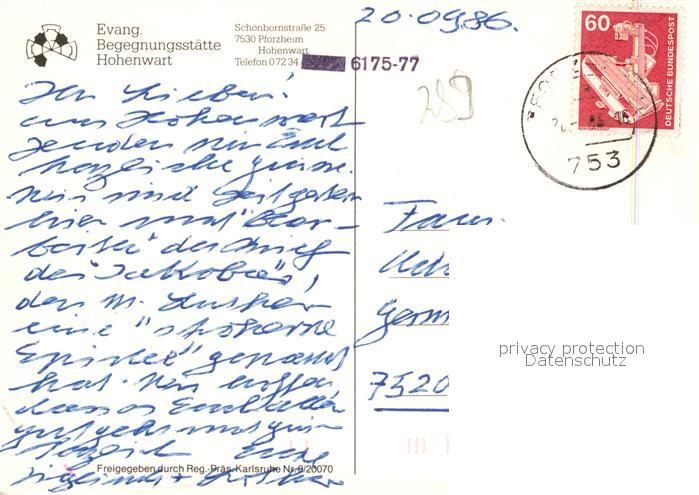 Evang.
Begegnungsstätte
Hohenwart
Schönbornstraße 25
7530 Pforzheim
Hohenwart
Telefon 0 72 34
6175-77
20.09.86.
60
DEUTSCHE BUNDESPOST
753
289
Ihr Lieben!
aus Hohenwart
senden wir Euch
herzliche Grüsse.
Wir sind seit gestern
hier und
den Brief
des "Jakobus",
den M. Luther
eine "stroherne
Epistel" genannt
hat. Wir hoffen,
dass es Euch allen
gut geht und
Fam.
7520
privacy protection
Datenschutz
Freigegeben durch Reg.-Präs. Karlsruhe Nr. 0/20070